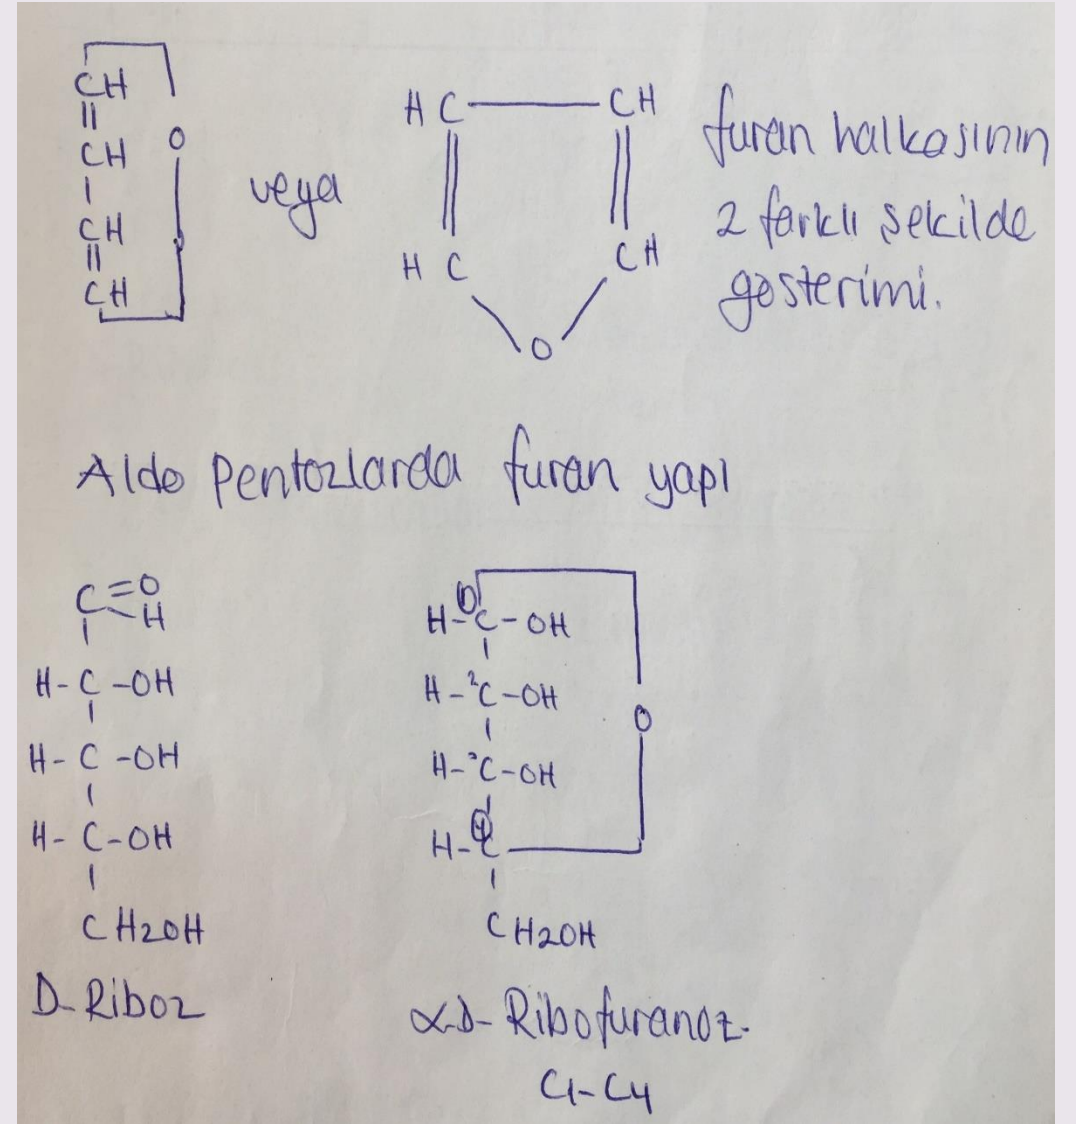 CH
||
CH O
|
CH
||
CH
veya
HC—CH
HC CH
O
furan halkasının
2 farklı şekilde
gösterimi.
Aldo pentozlarda furan yapı
C=O
H
H-C-OH
H-C-OH
H-C-OH
CH2OH
D-Riboz
1
H-C-OH
H-²C-OH
O
H-³C-OH
4
H-C
CH2OH
α-D-Ribofuranoz.
C1-C4